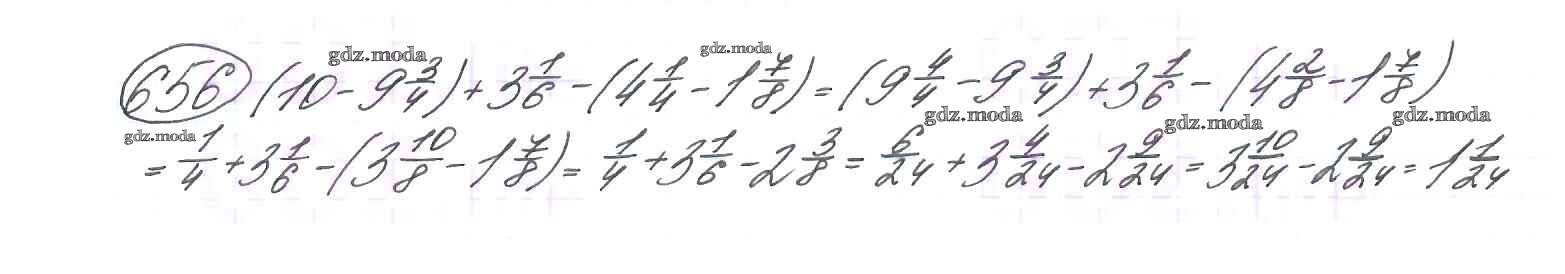 656 (10 - 9 3/4) + 3 1/6 - (4 1/4 - 1 7/8) = (9 4/4 - 9 3/4) + 3 1/6 - (4 2/8 - 1 7/8)
= 1/4 + 3 1/6 - (3 10/8 - 1 7/8) = 1/4 + 3 1/6 - 2 3/8 = 6/24 + 3 4/24 - 2 9/24 = 3 10/24 - 2 9/24 = 1 1/24
gdz.moda
gdz.moda
gdz.moda
gdz.moda
gdz.moda
gdz.moda